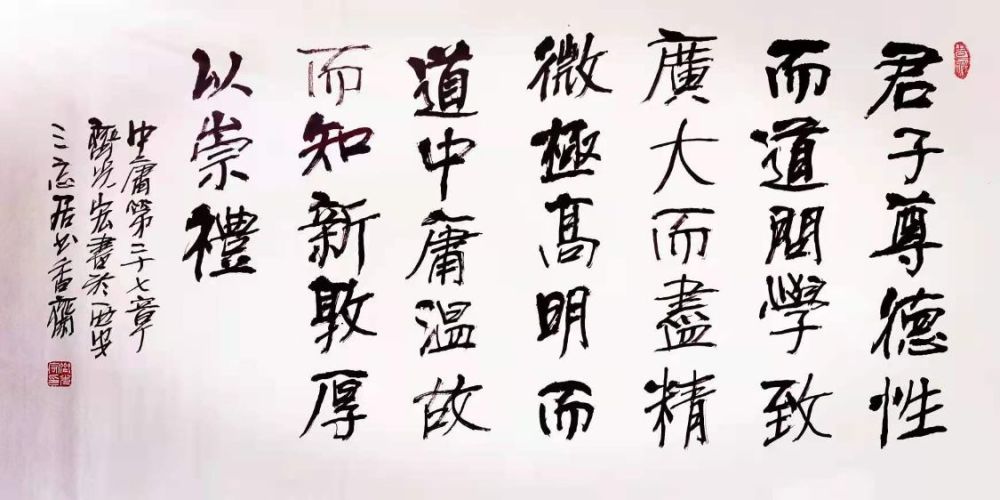 君子尊德性
而道問學致
廣大而盡精
微極髙明而
道中庸温故
而知新敦厚
以崇禮
中庸第二十七章
齊光宏書於西安
三忘居书香齋